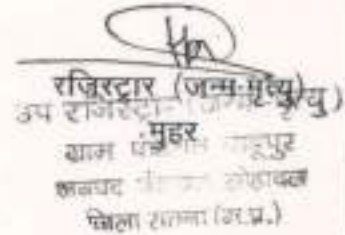 रजिस्ट्रार (जन्म-मृत्यु)
उप रजिस्ट्रार (जन्म-मृत्यु)
मुहर
ग्राम पंचायत
जनपद पंचायत सोहावल
जिला सतना (म.प्र.)